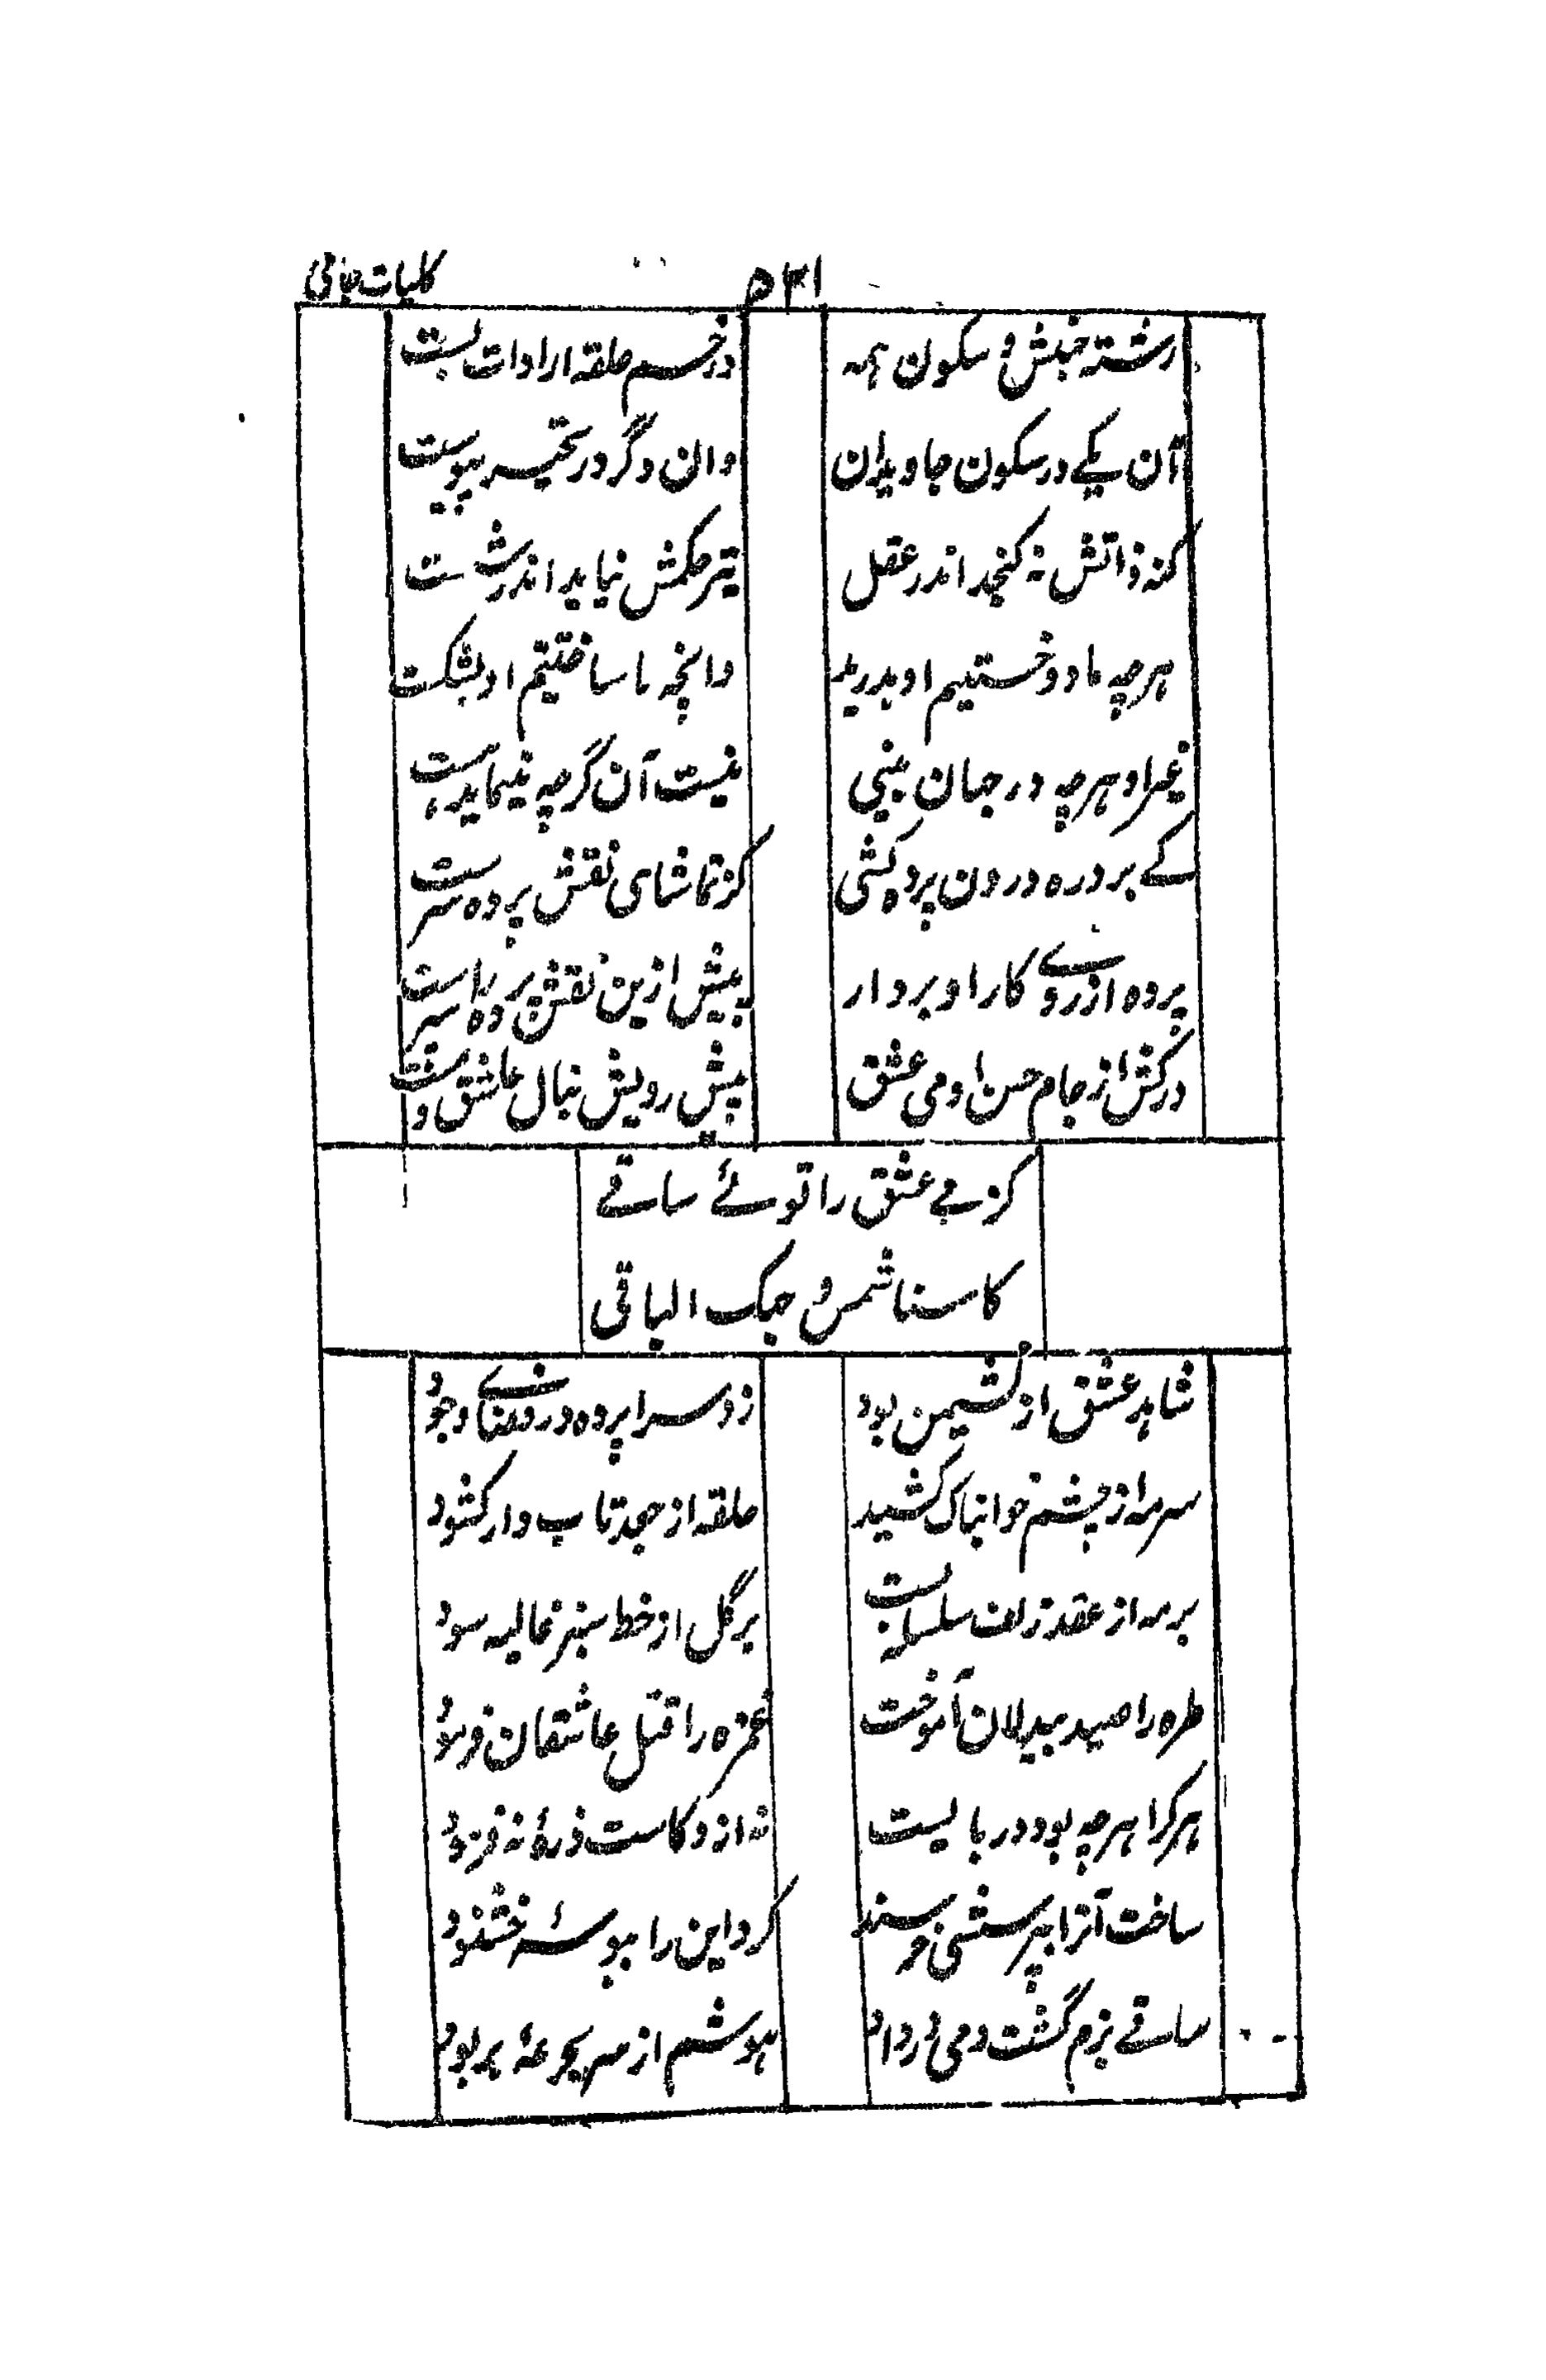 کلیات جامی
۵۳۱
رشتہ جنبش و سکون ہمہ
در خم حلقہ ارادات بست
آن یکے در سکون جاویدان
وان دگر در تحیر پیوست
کنہ ذاتش نہ گنجد اندر عقل
تیر حکمش نیاید اندر شست
ہرچہ ما دوختیم او بدرید
وانچہ ما ساختیم او بشکست
غیر او ہرچہ در جہان بینی
نیست آن گرچہ مینماید ہست
کے برد رہ درون پردہ کشی
کز تماشای نقش پردہ سرست
پردہ از روے کار او بردار
بیش ازین نقش پردہ را مپرست
درکش از جام حسن او می عشق
پیش رویش بنال عاشق و مست
کز می عشق را توئے ساقے
کاسنا شمس وجہک الباقی
شاہد عشق از نشیمن بود
زد سراپردہ در فضاے وجود
سرمہ از چشم خوابناک کشید
حلقہ از جعد تاب دار کشود
بر مہ از عقد زلف سلسلہ بست
بر گل از خط سبز غالیہ سود
طرہ را صید بیدلان آموخت
غمزہ را قتل عاشقان فرمود
ہر کرا ہرچہ بود در بایست
نہ ازو کاست ذرۂ نہ فزود
ساخت آنرا بپرسشی خرسند
کرد این را ببوسۂ خشنود
ساقے بزم گشت و می در داد
ہوشم از سر بجرعۂ بربود